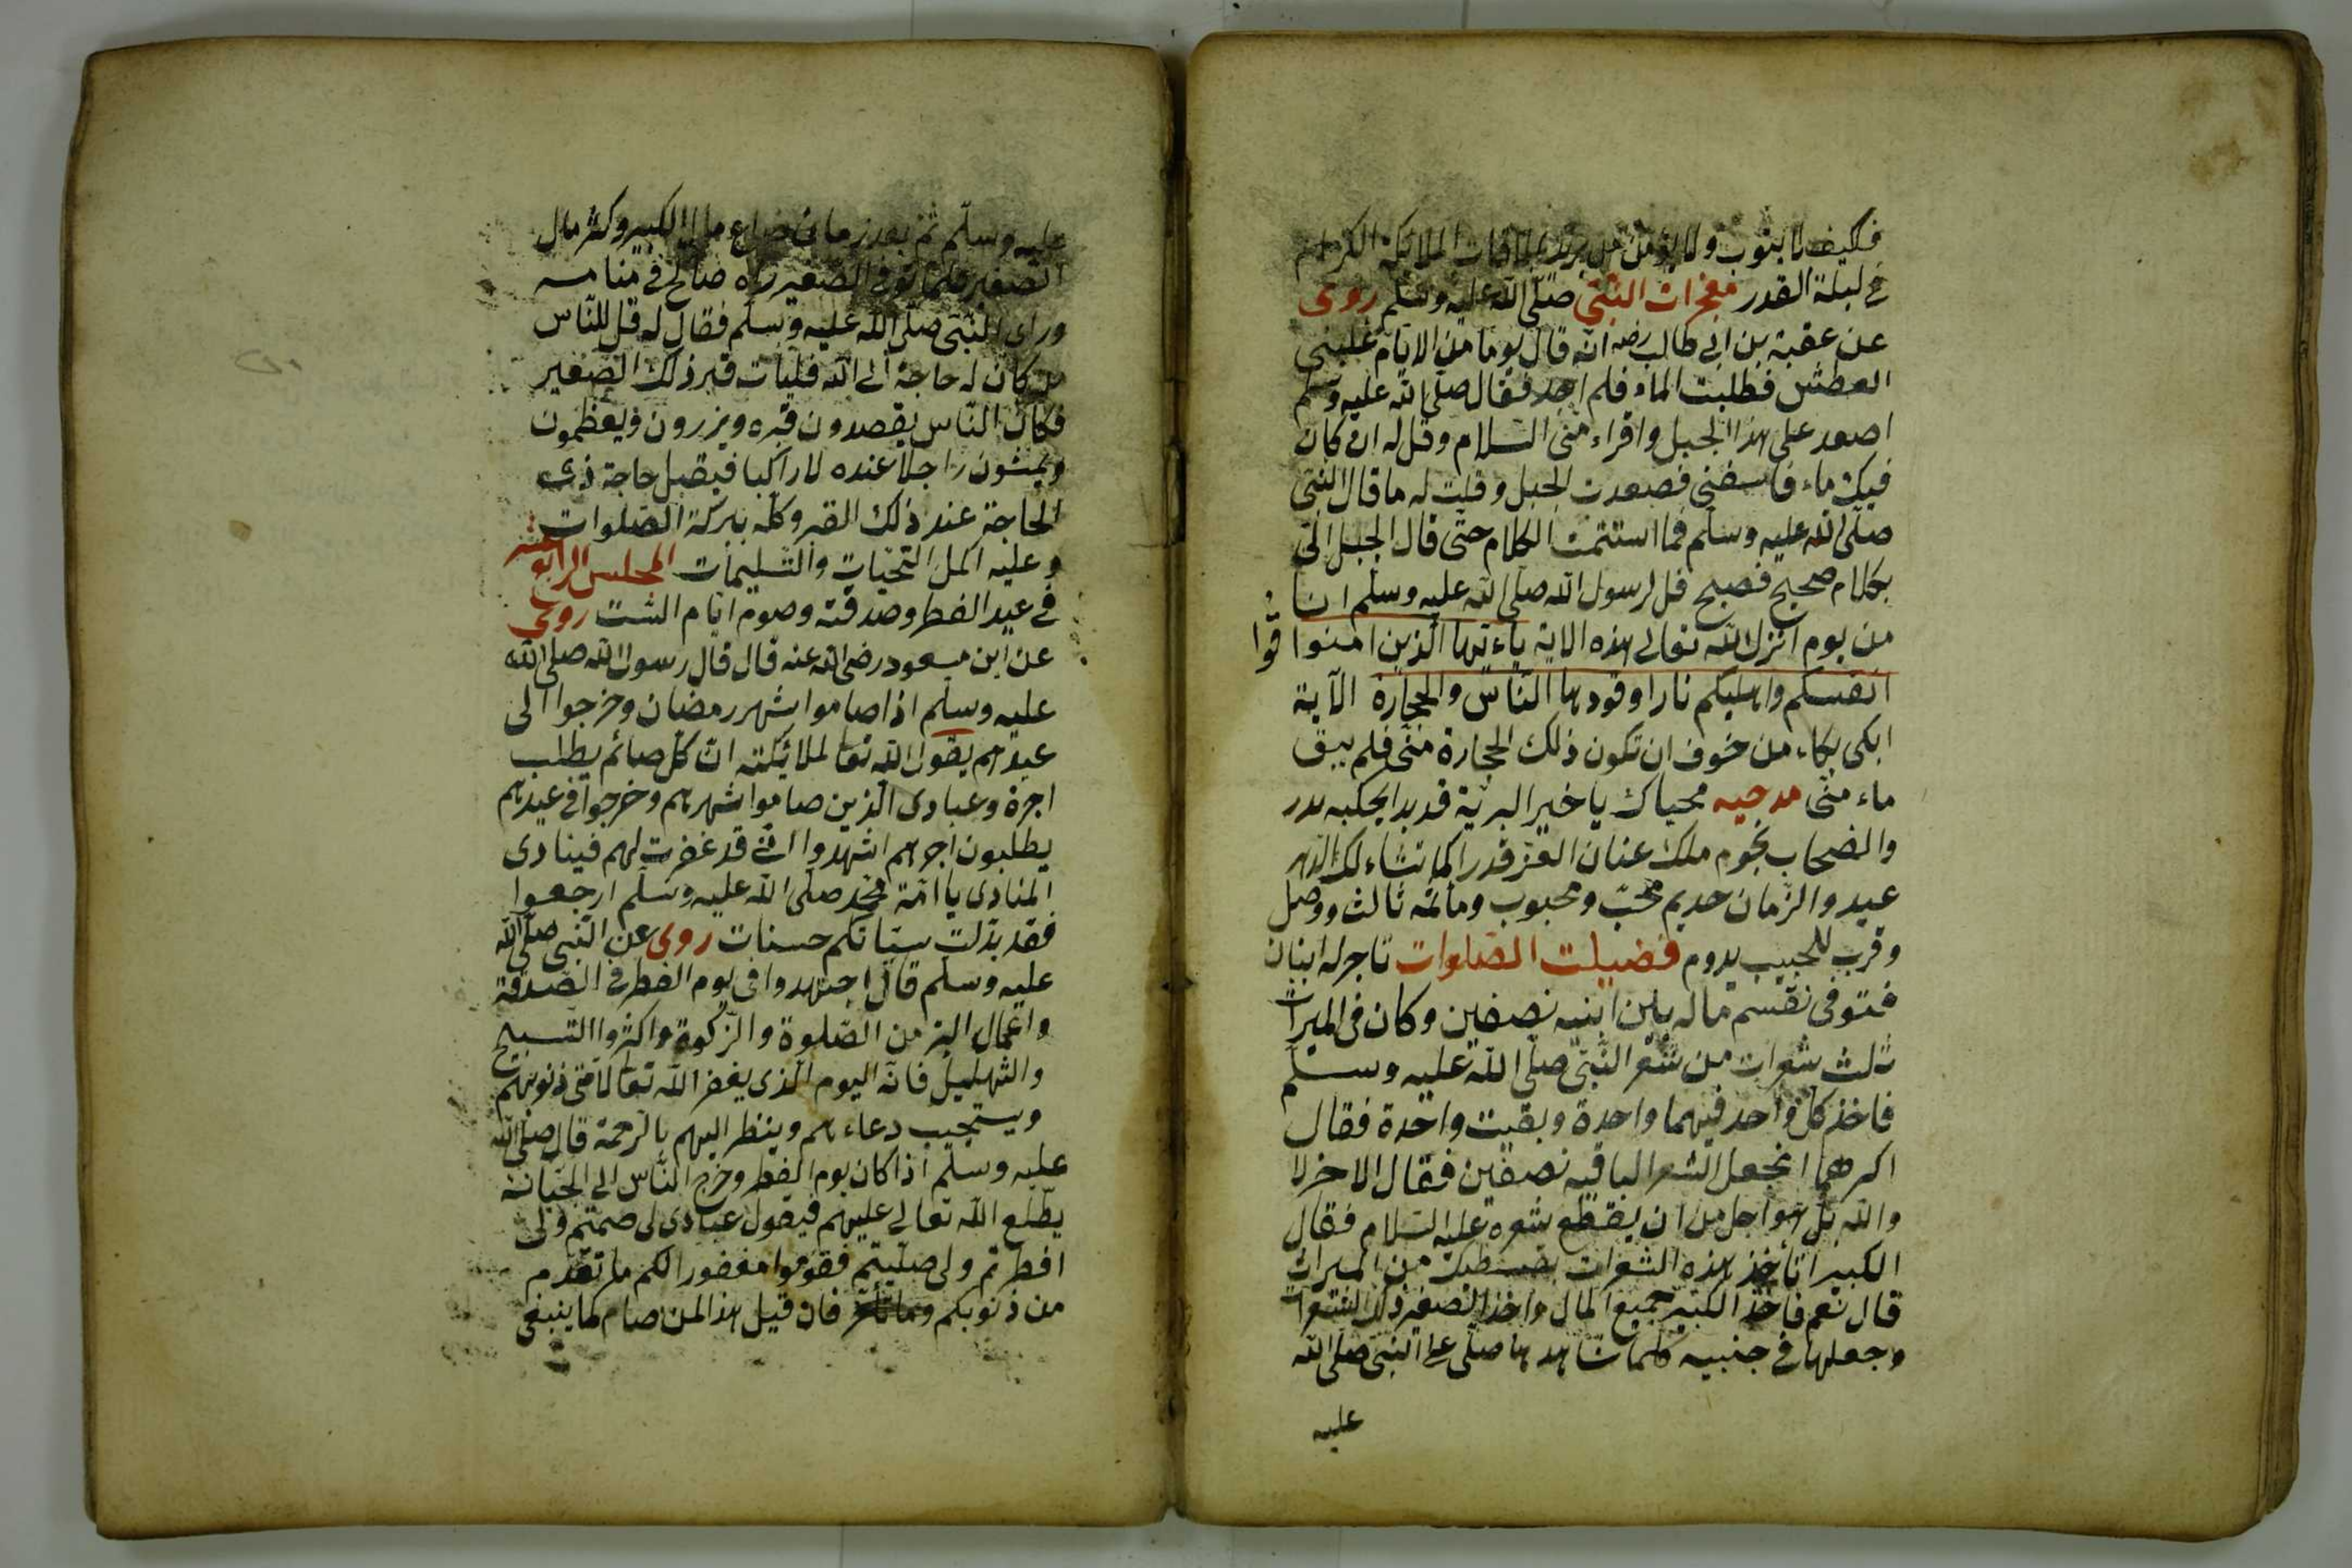 فكيف لا يتوب ولا يؤمن من يريد ملاقات الملائكة الكرام
فى ليلة القدر معجزات النبى صلى الله عليه وسلم روى
عن عقبة بن ابى طالب رضه انه قال يوما من الايام غلبنى
العطش فطلبت الماء فلم اجد فقال صلى الله عليه وسلم
اصعد على هذا الجبل واقراء منى السلام وقل له ان كان
فيك ماء فاسقنى فصعدت الجبل وقلت له ما قال النبى
صلى الله عليه وسلم فما استتمت الكلام حتى قال الجبل الى
بكلام صحيح فصيح قل لرسول الله صلى الله عليه وسلم انا
من يوم انزل الله تعالى هذه الاية ياءيها الذين امنوا قوا
انفسكم واهليكم نارا وقودها الناس والحجارة الآية
ابكى بكاء من خوف ان تكون ذلك الحجارة منى فلم يبق
ماء منى مدحيه محياك يا خير البرية قد بدا يحكيه بدر
والصحاب نجوم ملك عنان العز قدرا كما تشاء لك الدهر
عيد والزمان خديم محب ومحبوب وماثمه ثالث ووصل
وقرب للحبيب يدوم فضيلت الصلوات تاجر له ابنان
فتوفى نقسم ماله بين ابنيه نصفين وكان فى الميراث
ثلث شعرات من شعر النبى صلى الله عليه وسلم
فاخذ كل واحد فيهما واحدة وبقيت واحدة فقال
اكبرهما انجعل الشعر الباقيه نصفين فقال الاخر لا
والله بل هو اجل من ان يقطع شعره عليه السلام فقال
الكبير اتأخذ هذه الشعرات بقسطك من الميراث
قال نعم فاخذ الكبير جميع المال واخذ الصغير ذلك الشعرات
وجعلها فى جنبيه كلما شاهدها صلى على النبى صلى الله
عليه
عليه وسلم ثم بعد زمان ضاع مال الكبير وكثر مال
الصغير فلما توفى الصغير راه صالح فى منامه
وراى النبى صلى الله عليه وسلم فقال له قل للناس
من كان له حاجة الى الله فليأت قبر ذلك الصغير
فكان الناس يقصدون قبره ويزرون ويعظمون
ويمشون راجلا عنده لا راكبا فيقبل حاجة ذى
الحاجة عند ذلك القبر وكله ببركة الصلوات
وعليه اكمل التحيات والتسليمات المجلس الرابع عشر
فى عيد الفطر وصدقته وصوم ايام الست روى
عن ابن مسعود رضى الله عنه قال قال رسول الله صلى الله
عليه وسلم اذا صاموا شهر رمضان وخرجوا الى
عيدهم يقول الله تعا لملائكته ان كل صائم يطلب
اجرة وعبادى الذين صاموا شهرهم وخرجوا فى عيدهم
يطلبون اجرهم اشهدوا انى قد غفرت لهم فينادى
المنادى يا امة محمد صلى الله عليه وسلم ارجعوا
فقد بدلت سيئاتكم حسنات روى عن النبى صلى الله
عليه وسلم قال اجتهدوا فى يوم الفطر فى الصدقة
واعمال البر من الصلوة والزكوة واكثروا التسبيح
والتهليل فانه اليوم الذى يغفر الله تعا لامتى ذنوبهم
ويستجيب دعاءهم وينظر اليهم بالرحمة قال صلى الله
عليه وسلم اذا كان يوم الفطر وخرج الناس الى الجبانة
يطلع الله تعالى عليهم فيقول عبادى لى صمتم ولى
افطرتم ولى صليتم فقوموا مغفورا لكم ما تقدم
من ذنوبكم وما تأخر فان قيل هذا لمن صام كما ينبغى